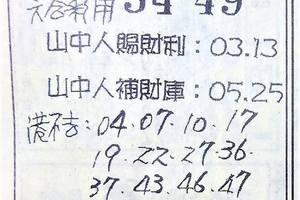 天合東用 34 49
山中人賜財利：03.13
山中人補財庫：05.25
港不吉：04.07.10.17
19.22.27.36.
37.43.46.47